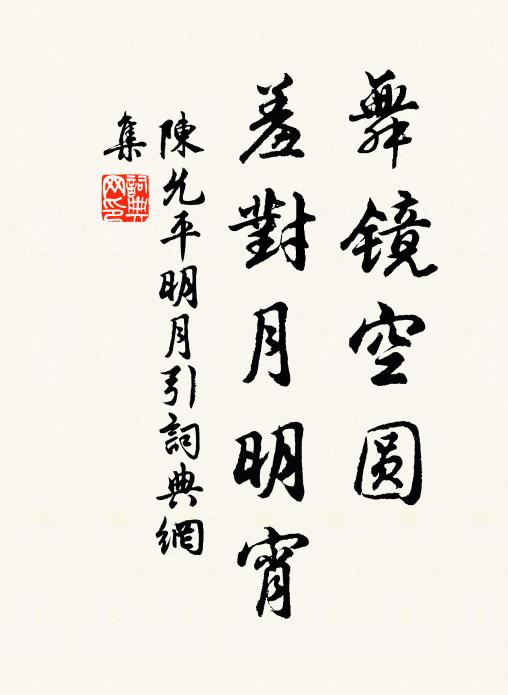 舞镜空圆
羞對月明宵
陳允平明月引詞典網
集
詞典
网印